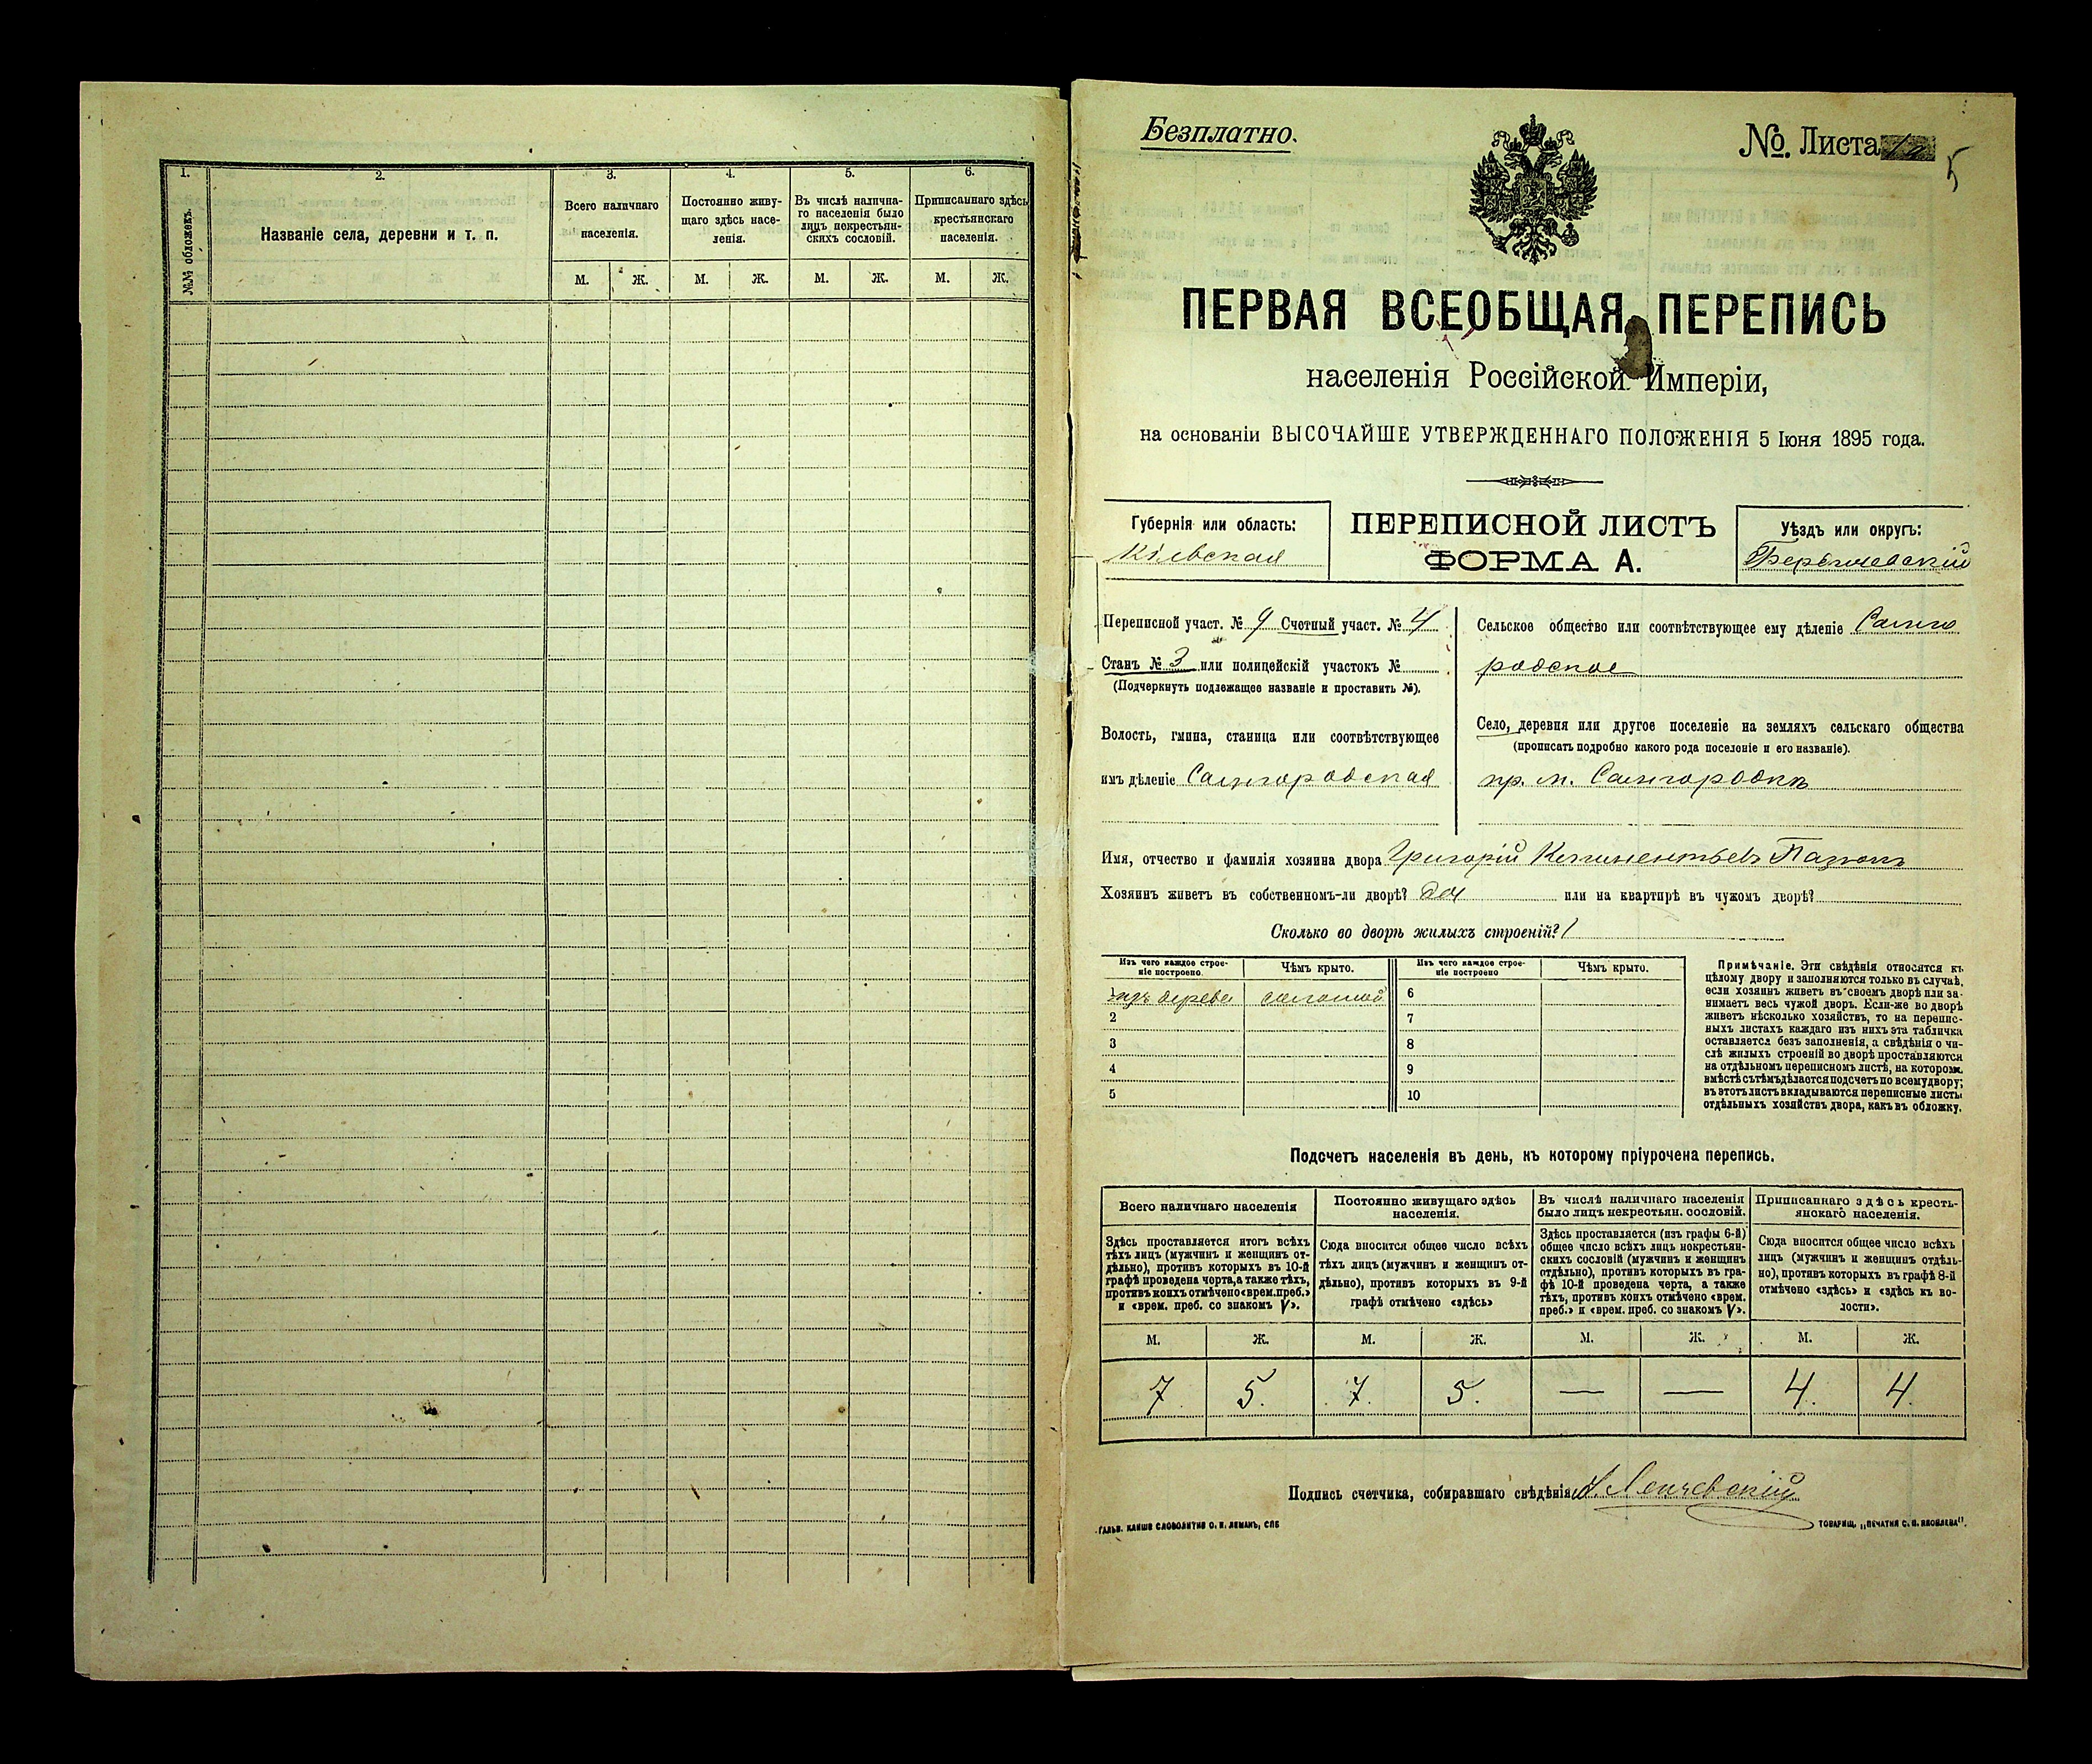 1.
2.
3.
4.
5.
6.
№№ обложекъ.
Названіе села, деревни и т. п.
Всего наличнаго
населенія.
Постоянно живу-
щаго здѣсь насе-
ленія.
Въ числѣ налична-
го населенія было
лицъ некрестьян-
скихъ сословій.
Приписаннаго здѣсь
крестьянскаго
населенія.
М. Ж. М. Ж. М. Ж. М. Ж.
Безплатно.
№. Листа
5
ПЕРВАЯ ВСЕОБЩАЯ ПЕРЕПИСЬ
населенія Россійской Имперіи,
на основаніи ВЫСОЧАЙШЕ УТВЕРЖДЕННАГО ПОЛОЖЕНІЯ 5 Іюня 1895 года.
Губернія или область:
Кіевская
ПЕРЕПИСНОЙ ЛИСТЪ
ФОРМА А.
Уѣздъ или округъ:
Бердичевскій
Переписной участ. № 9 Счетный участ. № 4
Станъ № 3 или полицейскій участокъ №
(Подчеркнуть подлежащее названіе и проставить №).
Волость, гмина, станица или соотвѣтствующее
имъ дѣленіе Самгородская
Сельское общество или соотвѣтствующее ему дѣленіе Самго
родское
Село, деревня или другое поселеніе на земляхъ сельскаго общества
(прописать подробно какого рода поселеніе и его названіе).
пр. м. Самгородкѣ
Имя, отчество и фамилія хозяина двора Григорій Климентьевъ
Хозяинъ живетъ въ собственномъ-ли дворѣ? да или на квартирѣ въ чужомъ дворѣ?
Сколько во дворѣ жилыхъ строеній? 1
Изъ чего каждое строе-
ніе построено.
Чѣмъ крыто.
Изъ чего каждое строе-
ніе построено
Чѣмъ крыто.
1 изъ дерева соломой 6
2 7
3 8
4 9
5 10
Примѣчаніе. Эти свѣдѣнія относятся къ
цѣлому двору и заполняются только въ случаѣ,
если хозяинъ живетъ въ своемъ дворѣ или за-
нимаетъ весь чужой дворъ. Если-же во дворѣ
живетъ нѣсколько хозяйствъ, то на перепис-
ныхъ листахъ каждаго изъ нихъ эта табличка
оставляется безъ заполненія, а свѣдѣнія о чи-
слѣ жилыхъ строеній во дворѣ проставляются
на отдѣльномъ переписномъ листѣ, на которомъ
вмѣстѣ съ тѣмъ дѣлается подсчетъ по всему двору;
въ этотъ листъ вкладываются переписные листы
отдѣльныхъ хозяйствъ двора, какъ въ обложку.
Подсчетъ населенія въ день, къ которому пріурочена перепись.
Всего наличнаго населенія
Здѣсь проставляется итогъ всѣхъ
тѣхъ лицъ (мужчинъ и женщинъ от-
дѣльно), противъ которыхъ въ 10-й
графѣ проведена черта, а также тѣхъ,
противъ коихъ отмѣчено «врем. преб.»
и «врем. преб. со знакомъ V».
Постоянно живущаго здѣсь
населенія.
Сюда вносится общее число всѣхъ
тѣхъ лицъ (мужчинъ и женщинъ от-
дѣльно), противъ которыхъ въ 9-й
графѣ отмѣчено «здѣсь»
Въ числѣ наличнаго населенія
было лицъ некрестьян. сословій.
Здѣсь проставляется (изъ графы 6-й)
общее число всѣхъ лицъ некрестьян-
скихъ сословій (мужчинъ и женщинъ
отдѣльно), противъ которыхъ въ гра-
фѣ 10-й проведена черта, а также
тѣхъ, противъ коихъ отмѣчено «врем.
преб.» и «врем. преб. со знакомъ V».
Приписаннаго здѣсь кресть-
янскаго населенія.
Сюда вносится общее число всѣхъ
лицъ (мужчинъ и женщинъ отдѣль-
но), противъ которыхъ въ графѣ 8-й
отмѣчено «здѣсь» и «здѣсь къ во-
лости».
М. Ж. М. Ж. М. Ж. М. Ж.
7 5. 7. 5. — — 4. 4.
Подпись счетчика, собиравшаго свѣдѣнія
ГАЛЬВ. КЛИШЕ СЛОВОЛИТНИ О. И. ЛЕМАНЪ, СПБ
ТОВАРИЩ. „ПЕЧАТНЯ С. П. ЯКОВЛЕВА".